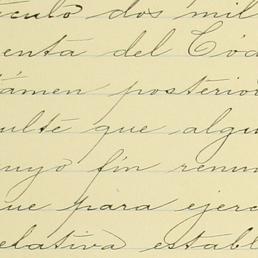 tículo dos mil
enta del Cód
támen posterio
sulte que algu
cuyo fin renun
que para ejerc
relativa establ